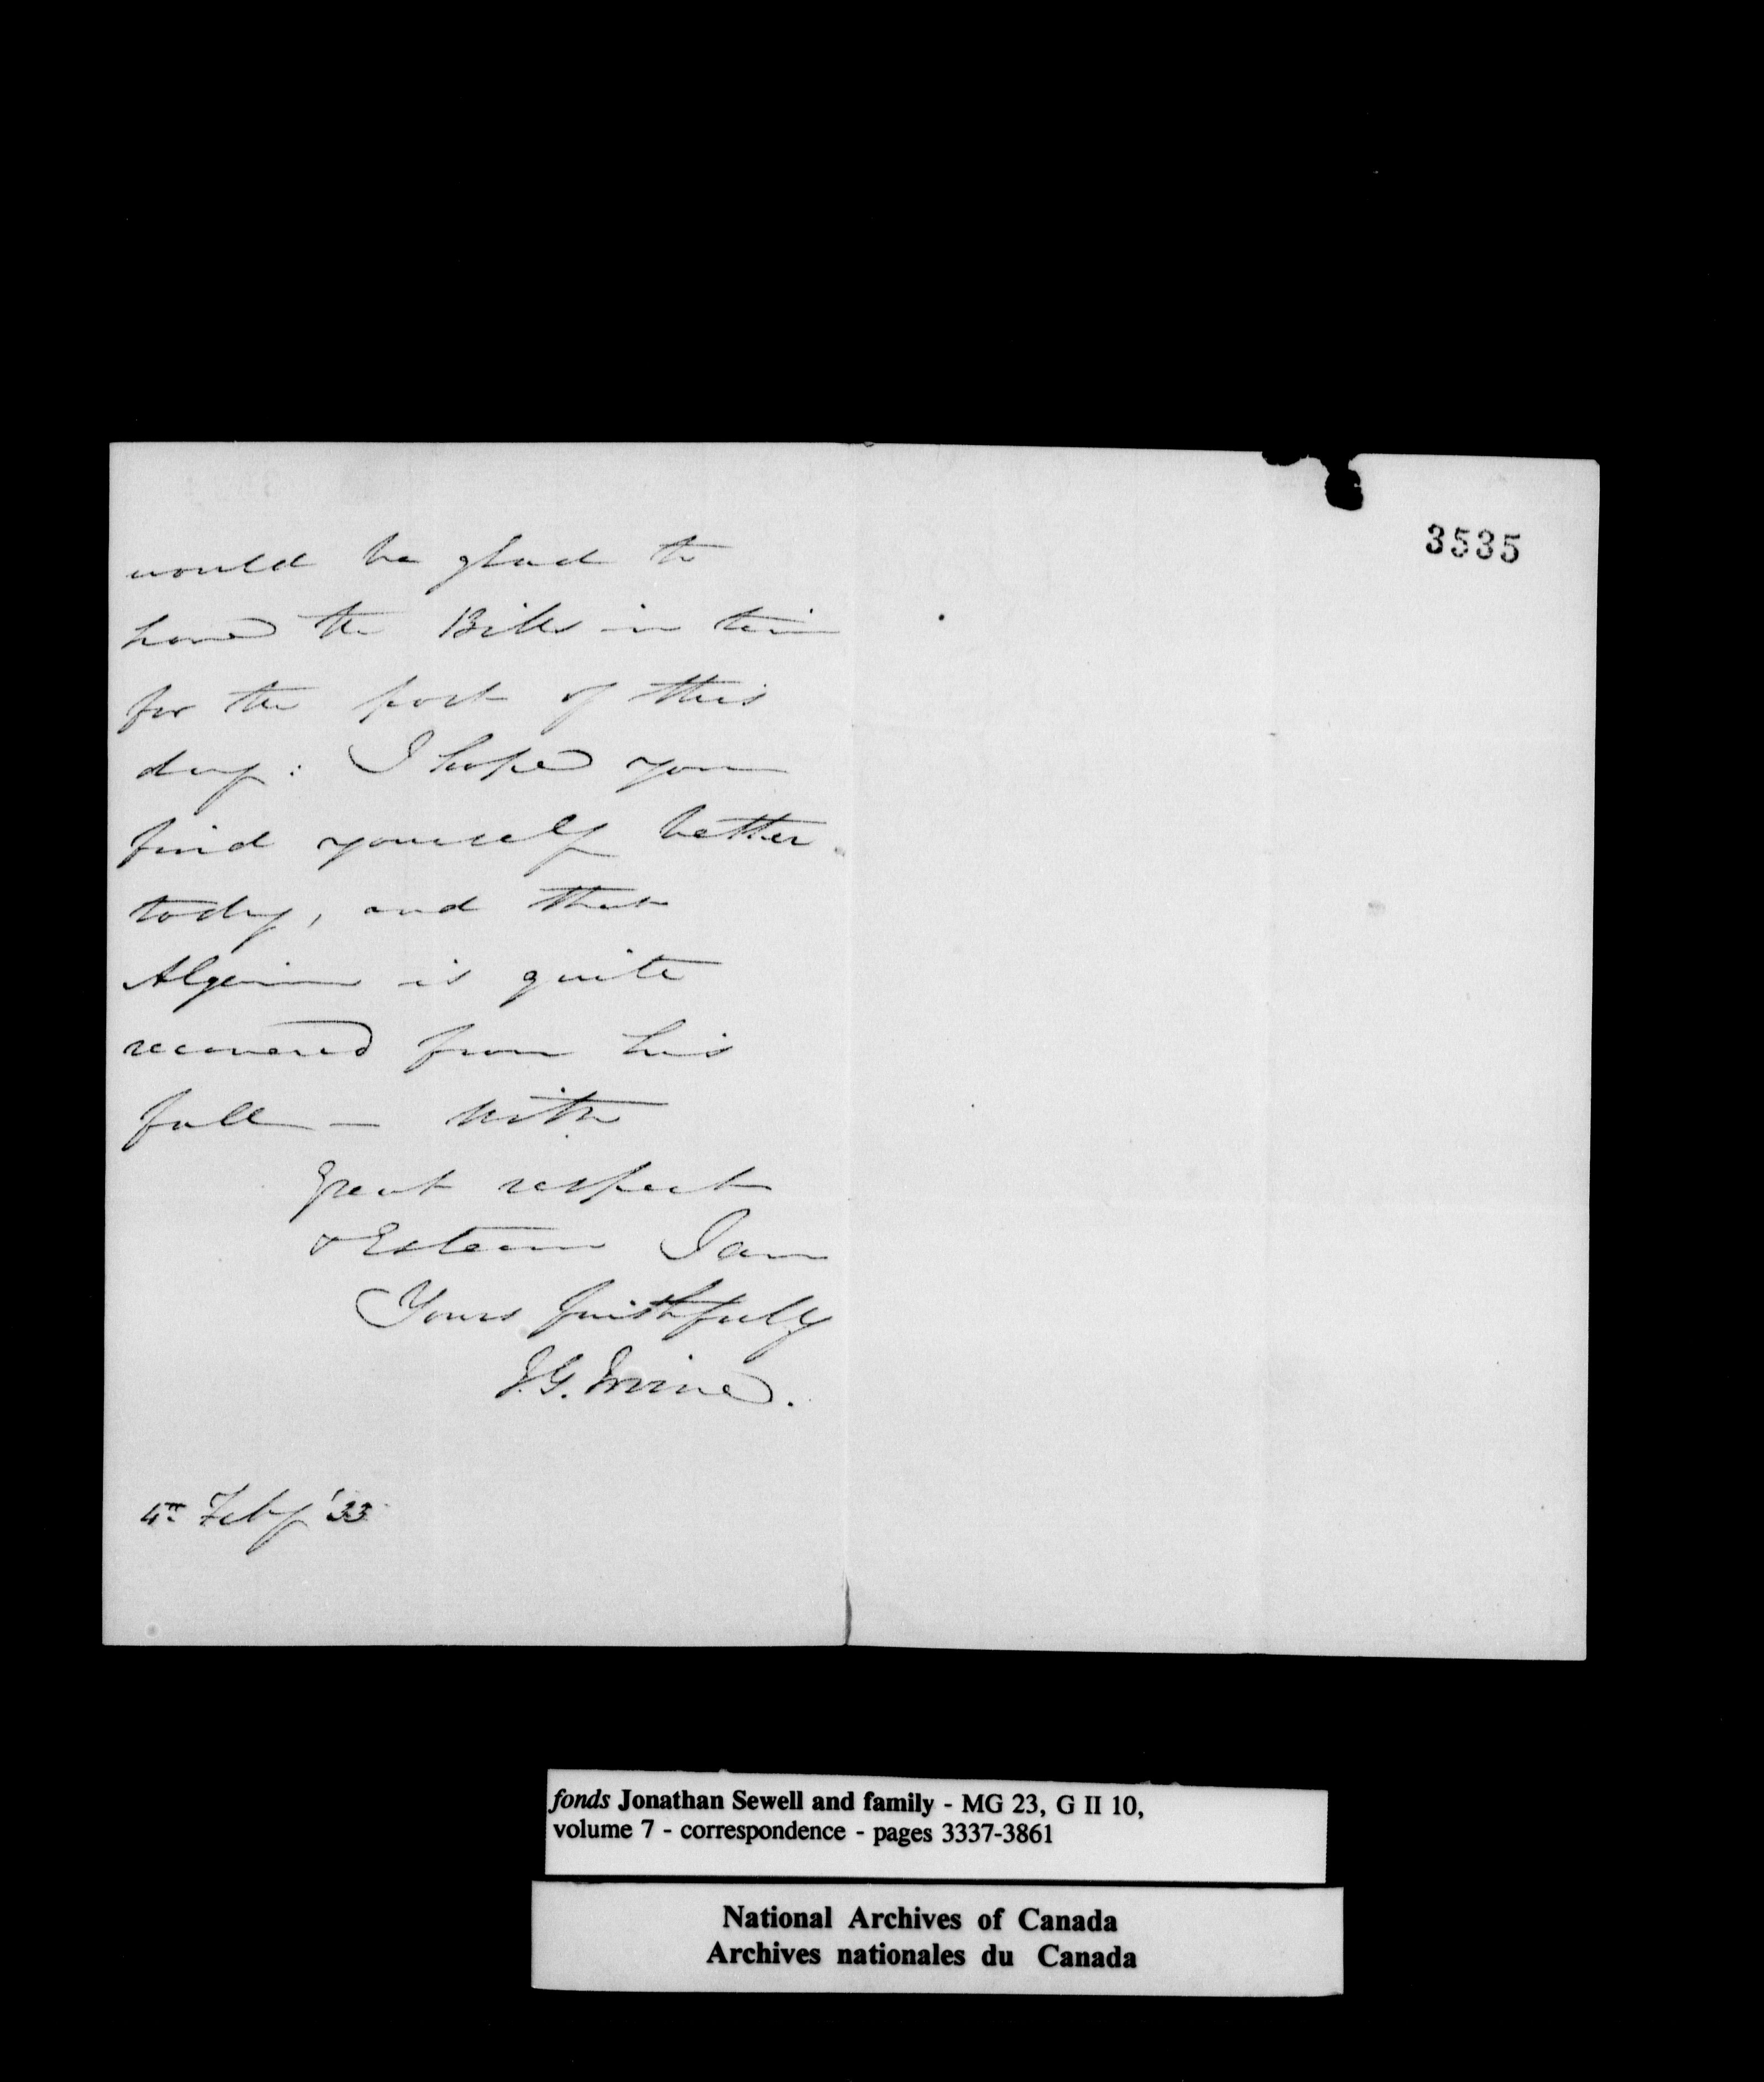 would be glad to
have the Bills in time
for the post of this
day: I hope you
find yourself better
today, and that
Algernon is quite
recovered from his
fall — With
great respect
& Esteem I am
Yours faithfully
J.G. Irvine.
4th Feby '33
3535
fonds Jonathan Sewell and family - MG 23, G II 10,
volume 7 - correspondence - pages 3337-3861
National Archives of Canada
Archives nationales du Canada